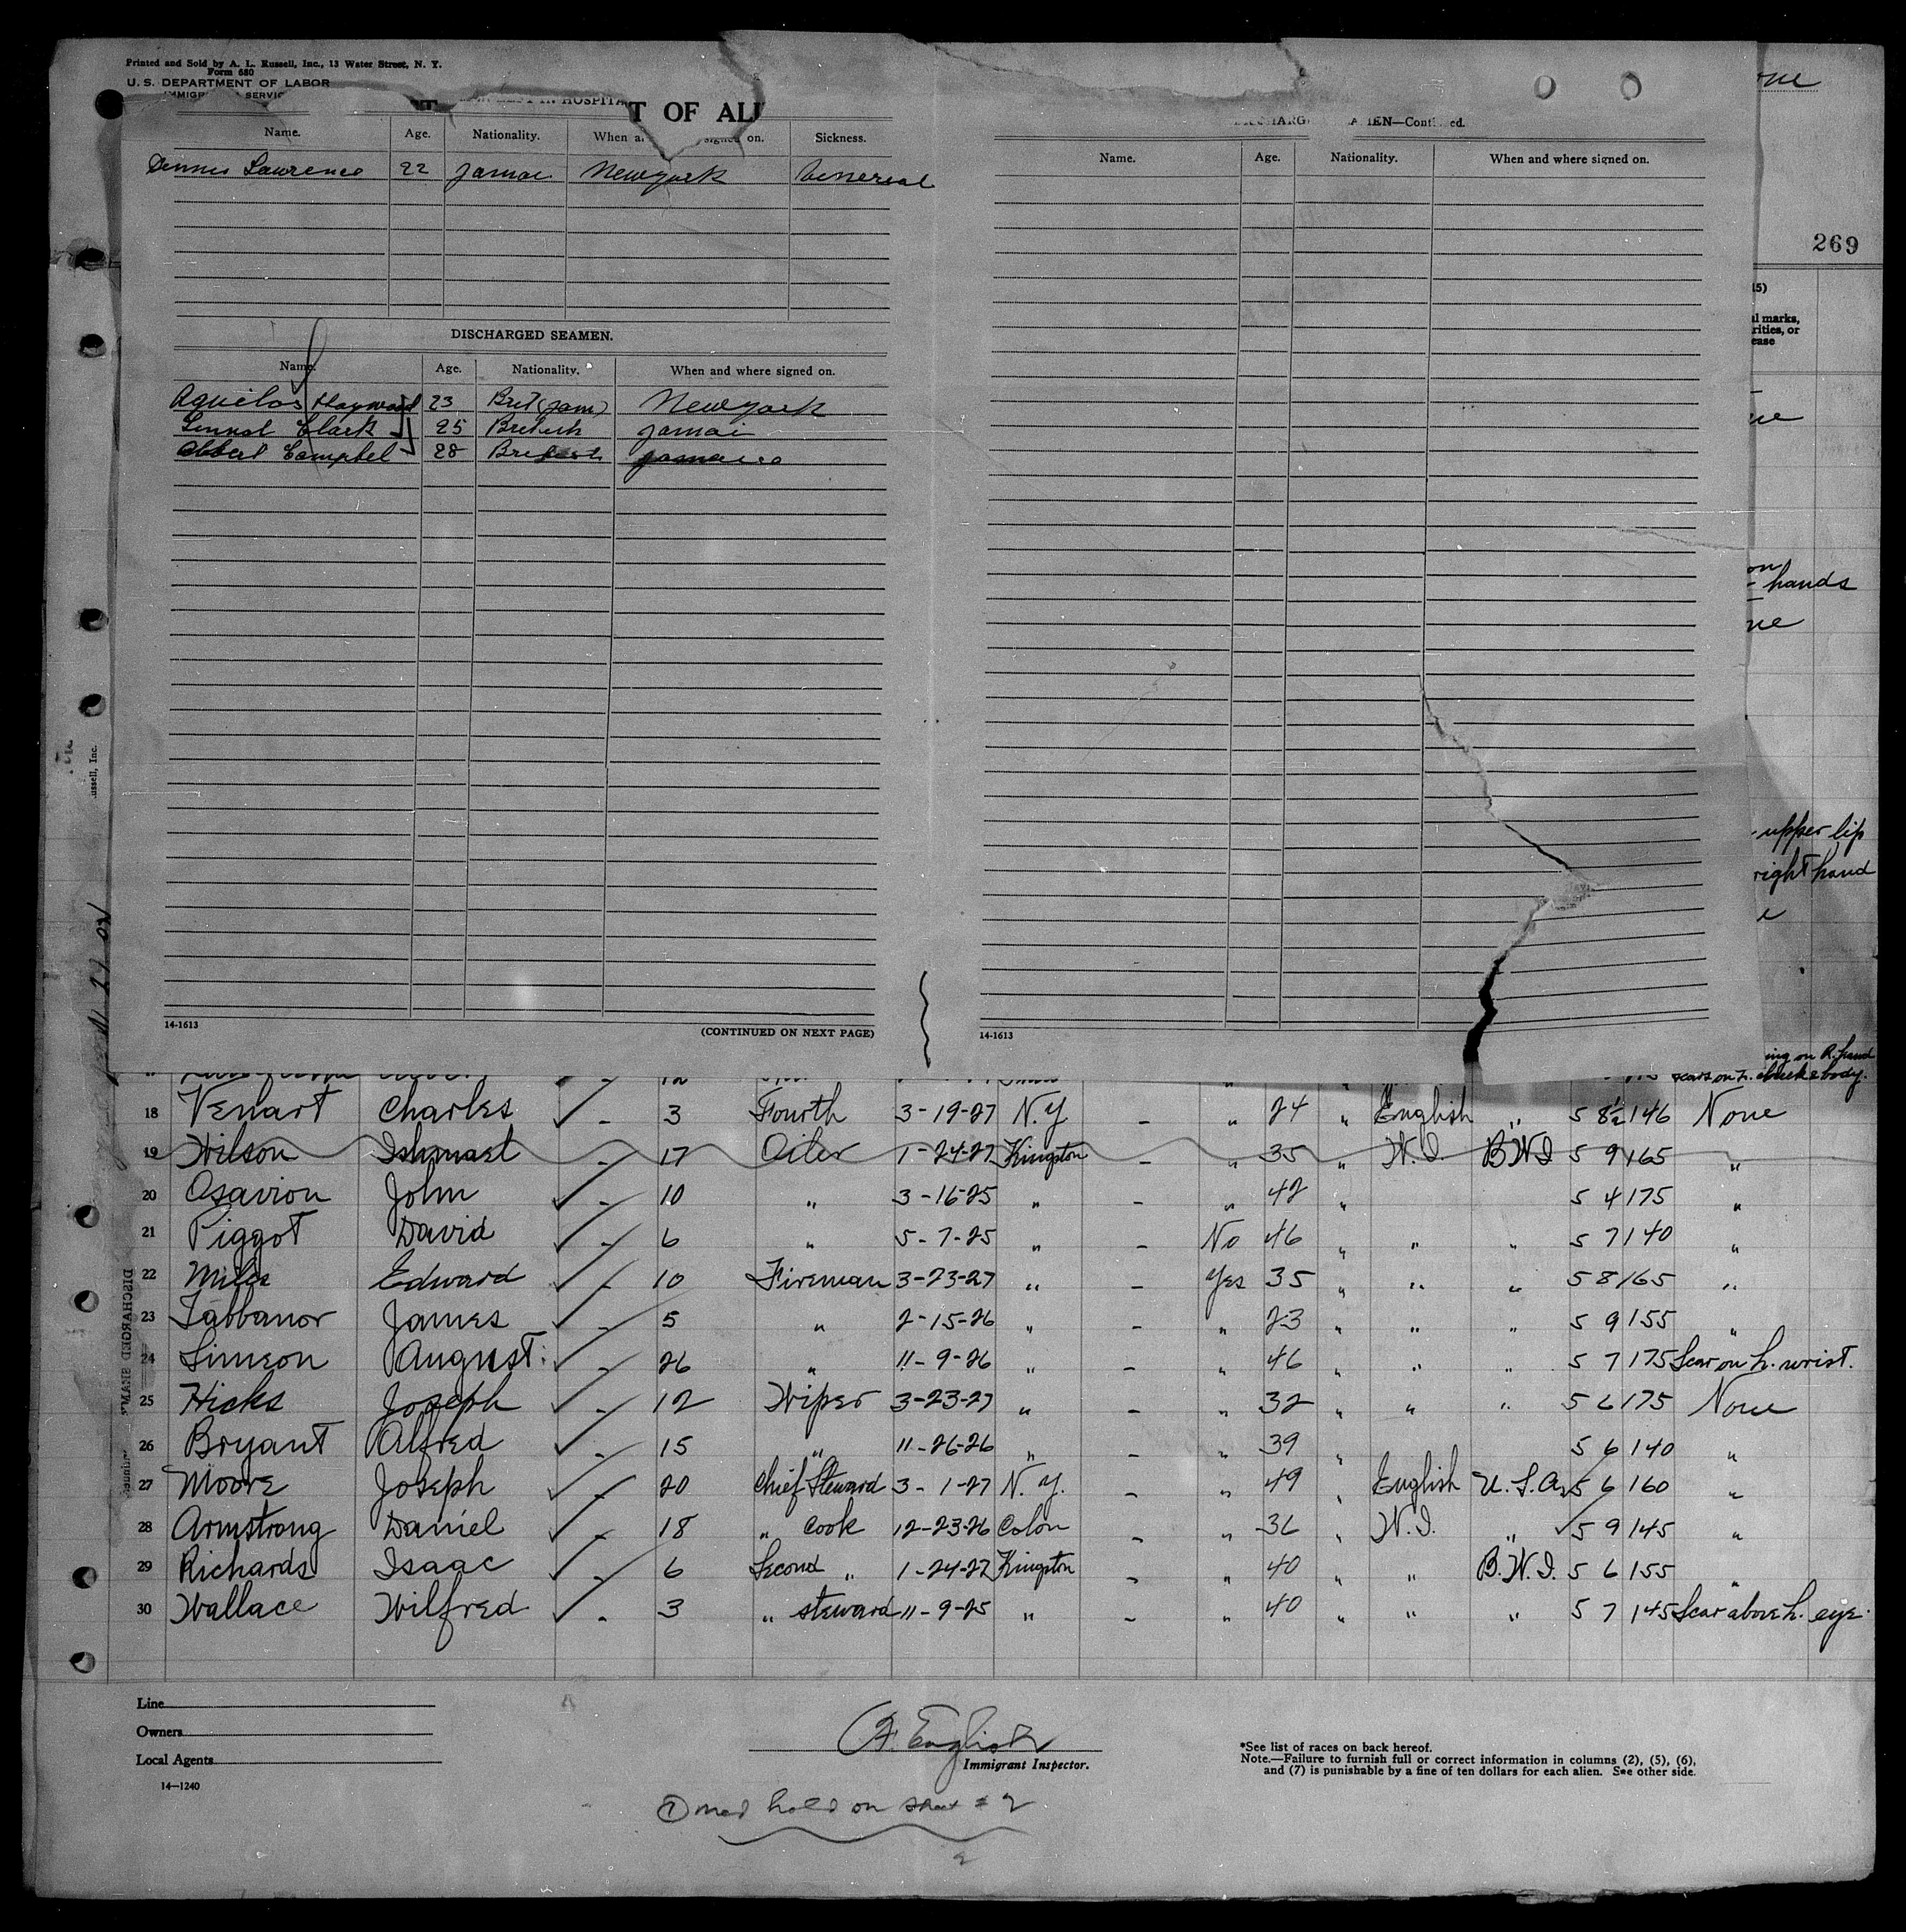 Printed and Sold by A. L. Russell, Inc., 13 Water Street, N. Y.
Form 680
U. S. DEPARTMENT OF LABOR
T OF ALI
one
269
Name. Age. Nationality. When a signed on. Sickness.
Dennis Lawrence 22 Jamai Newyork Venereal
DISCHARGED SEAMEN.
Name. Age. Nationality. When and where signed on.
Aquilos Haywood 23 Brit (Jam) Newyork
Clark 25 British Jamai
Campbel 28 British Jamaica
14-1613 (CONTINUED ON NEXT PAGE)
IEN—Conti ed.
Name. Age. Nationality. When and where signed on.
14-1613
5)
al marks,
rities, or
ease
ne
on
hands
ne
upper lip
right hand
e
ussell, Inc.
ing on R. hand
scars on h. cheek & body.
18 Venart Charles ✓ - 3 Fourth 3-19-27 N.Y - " 24 " English " 5 8½ 146 None
19 Wilson Ishmael - 17 Oiler 1-24-27 Kingston - " 35 " W.I. BWI 5 9 165 "
20 Osavion John ✓ - 10 " 3-16-25 " - " 42 " 5 4 175 "
21 Piggot David ✓ - 6 " 5-7-25 " - No 46 " " " 5 7 140 "
22 Miles Edward ✓ - 10 Fireman 3-23-27 " - Yes 35 " " " 5 8 165 "
23 Tabbanor James ✓ - 5 " 2-15-26 " - " 23 " " " 5 9 155 "
24 Simeon August. ✓ - 26 " 11-9-26 " - " 46 " " " 5 7 175 Scar on h. wrist.
25 Hicks Joseph ✓ - 12 Wiper 3-23-27 " - " 32 " " " 5 6 175 None
26 Bryant Alfred ✓ - 15 " 11-26-26 " - " 39 5 6 140 "
27 Moore Joseph ✓ - 20 Chief Steward 3-1-27 N.Y. - " 49 " English U.S.A. 5 6 160 "
28 Armstrong Daniel ✓ - 18 " Cook 12-23-26 Colon - " 36 " W.I. " 5 9 145 "
29 Richards Isaac ✓ - 6 Second " 1-24-27 Kingston - " 40 " " B.W.I. 5 6 155 "
30 Wallace Wilfred ✓ - 3 " steward 11-9-25 " - " 40 " " " 5 7 145 Scar above h. eye.
Line
Owners
Local Agents
14—1240
English
Immigrant Inspector.
*See list of races on back hereof.
Note.—Failure to furnish full or correct information in columns (2), (5), (6),
and (7) is punishable by a fine of ten dollars for each alien. See other side.
① med hold on sheet # 2